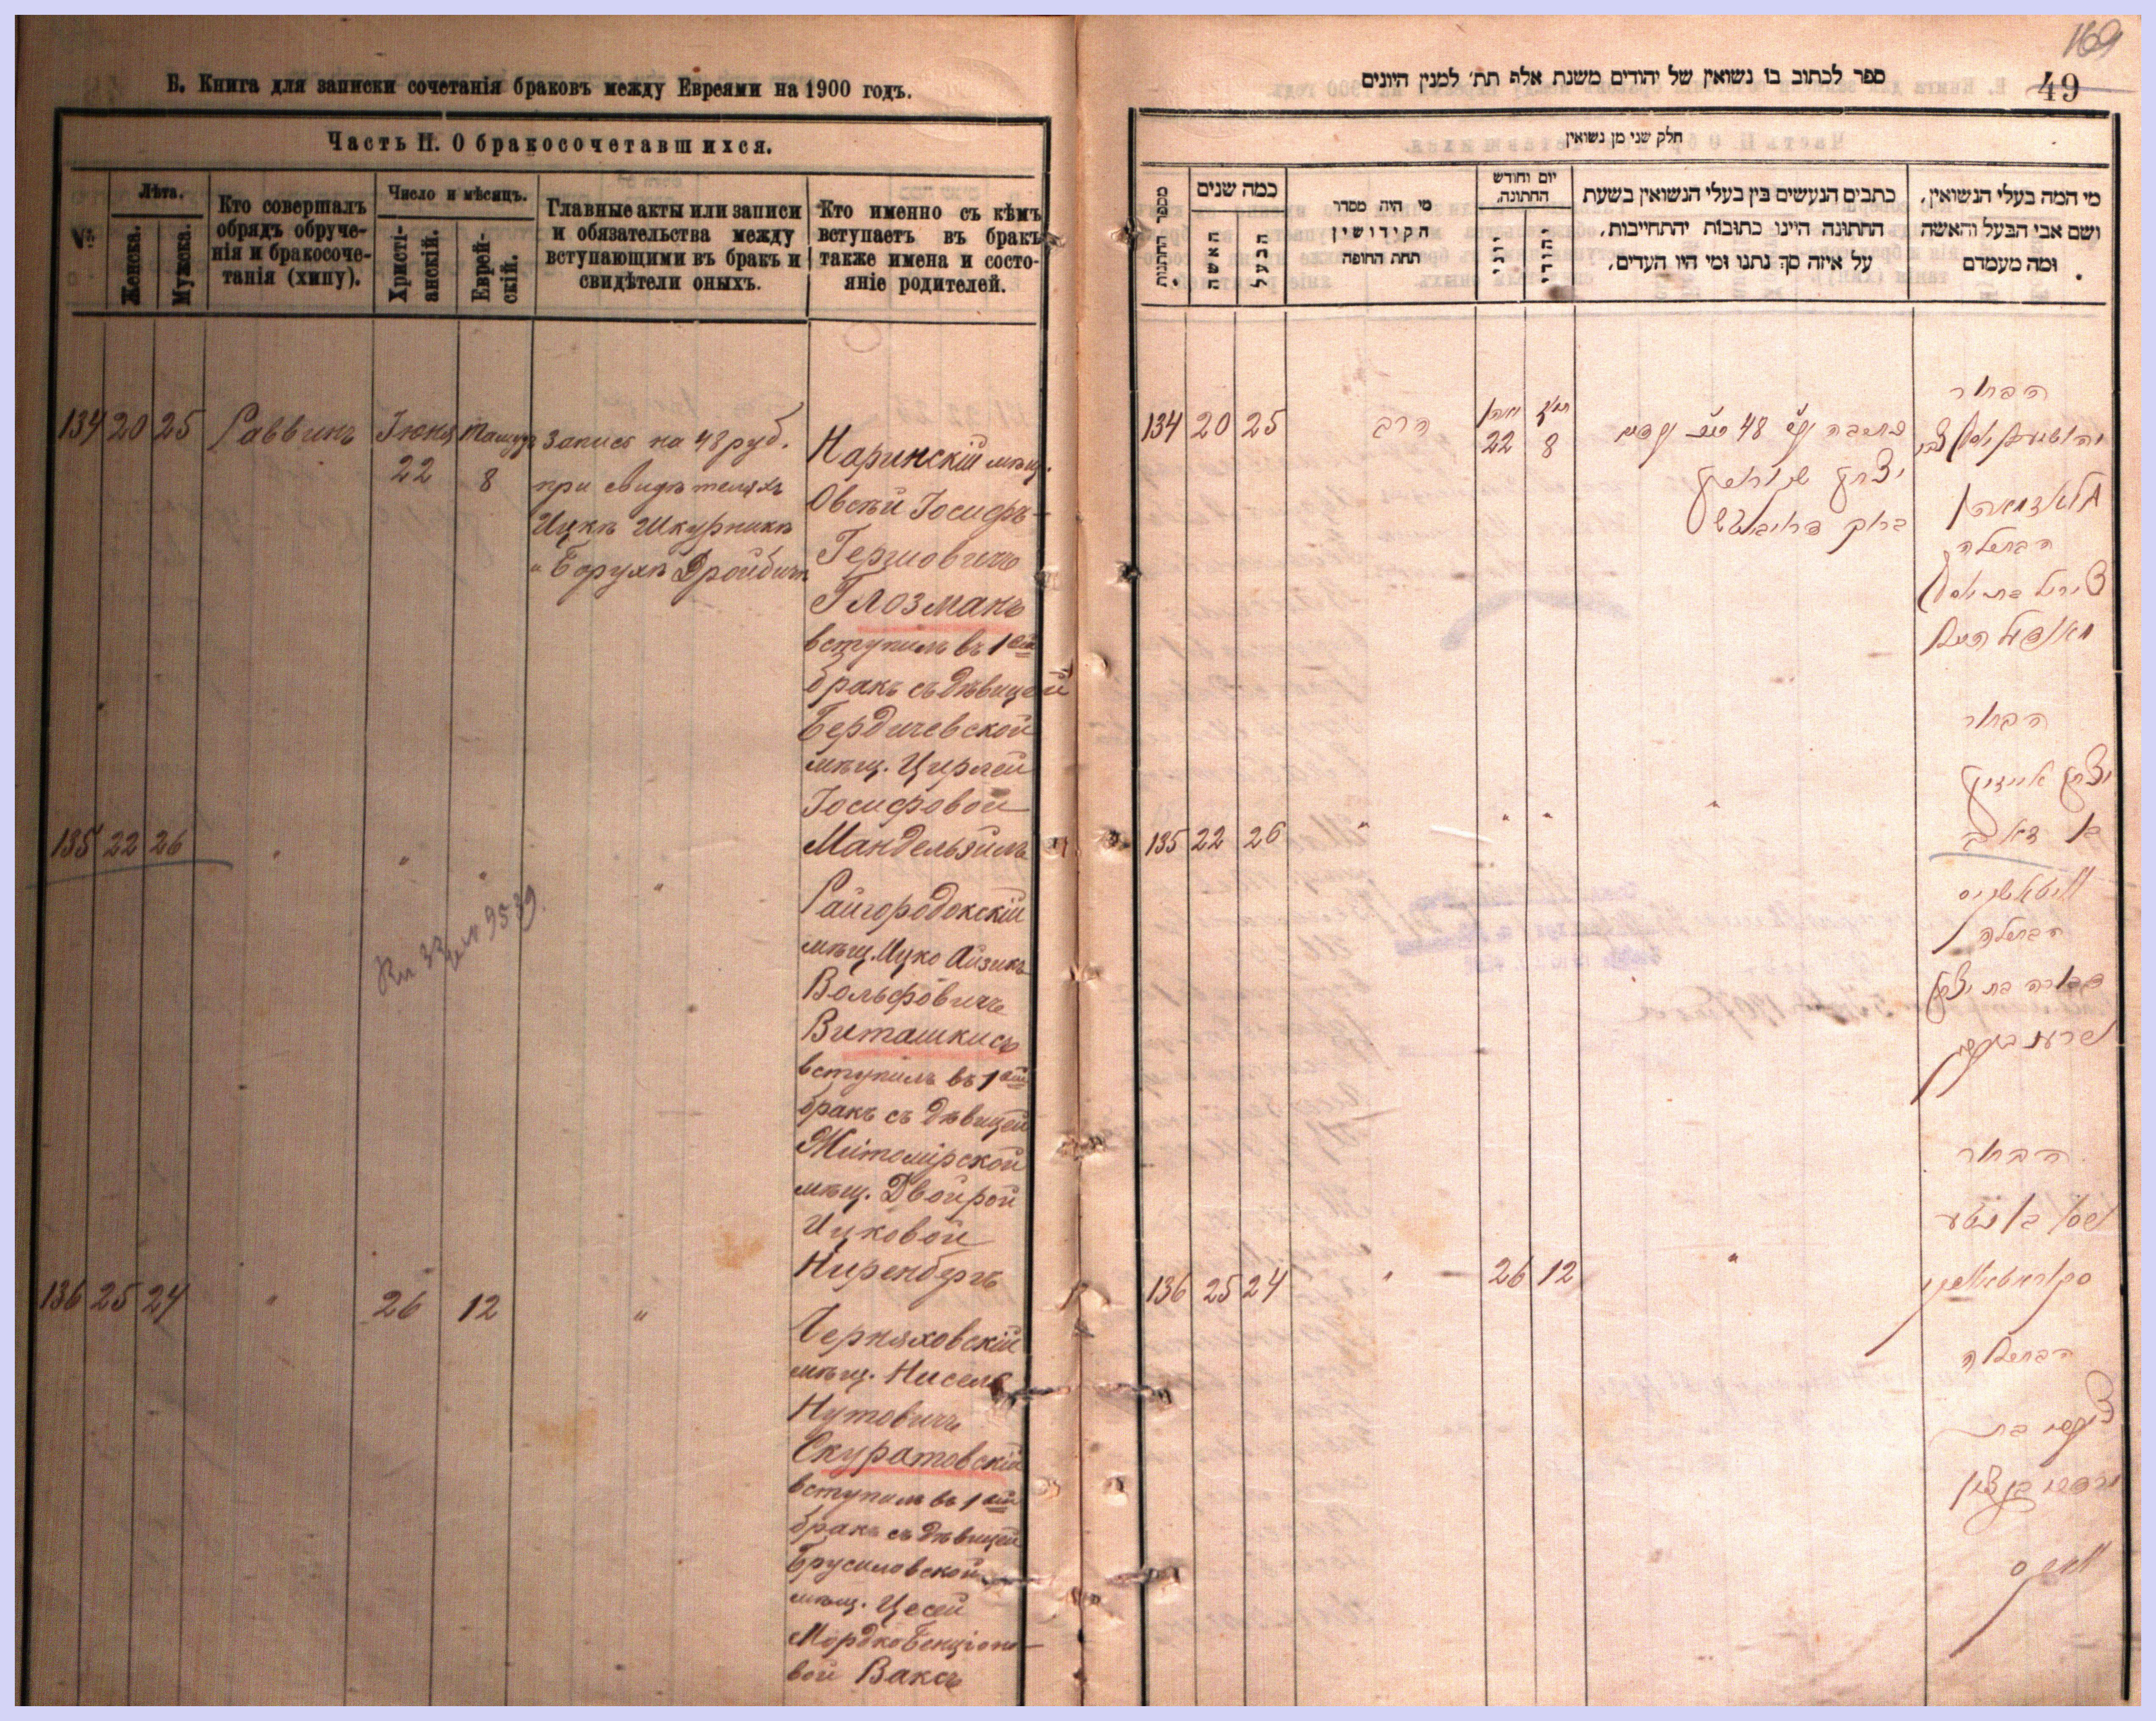 Б. Книга для записки сочетанія браковъ между Евреями на 1900 годъ.
Часть II. О бракосочетавшихся.
№
Лѣта.
Женска.
Мужска.
Кто совершалъ
обрядъ обруче-
нія и бракосоче-
танія (хипу).
Число и мѣсяцъ.
Христі-
анскій.
Еврей-
скій.
Главные акты или записи
и обязательства между
вступающими въ бракъ и
свидѣтели оныхъ.
Кто именно съ кѣмъ
вступаетъ въ бракъ
также имена и состо-
яніе родителей.
134 20 25 Раввинъ Іюня 22 Тамуз 8
Запись на 48 руб.
при свидѣтеляхъ
Ицкѣ Шкурникѣ
и Борухѣ Дройбичъ
Наринскій мѣщ.
Овсѣй Іосифъ
Гершовичъ
Глозманъ
вступилъ въ 1ый
бракъ съ дѣвицей
Бердичевской
мѣщ. Цирлей
Іосифовой
Мандельзилъ
135 22 26 " " " "
Райгородокскій
мѣщ. Ицко Айзикъ
Вольфовичъ
Виташкисъ
вступилъ въ 1ый
бракъ съ дѣвицей
Житомірской
мѣщ. Двойрой
Ицковой
Ниренбергъ
136 25 24 " 26 12 "
Черняховскій
мѣщ. Нисель
Нутовичъ
Скуратовскій
вступилъ въ 1ый
бракъ съ дѣвицей
Брусиловской
мѣщ. Цесей
Мордко Бенціоно-
вой Ваксъ
169
49
ספר לכתוב בו נשואין של יהודים משנת אלף תת׳ למנין היונים
חלק שני מן נשואין
מספר החתונות
כמה שנים
האשה
הבעל
מי היה מסדר
הקידושין
תחת החופה
יום וחודש
החתונה.
יווני
יהודי
כתבים הנעשים בין בעלי הנשואין בשעת
החתונה היינו כתובות יהתחייבות,
על איזה סך נתנו ומי היו העדים.
מי המה בעלי הנשואין,
ושם אבי הבעל והאשה
ומה מעמדם
134 20 25 הרב 22 8
הבחור
הבתולה
צירל בת יוסף
135 22 26 " " " "
הבחור
יצחק אייזיק
בן זאב
וויטאשקיס
הבתולה
דבורה בת יצחק
136 25 24 " 26 12 "
הבחור
ניסן בן נטע
סקוראטאווסקי
הבתולה
וואקס